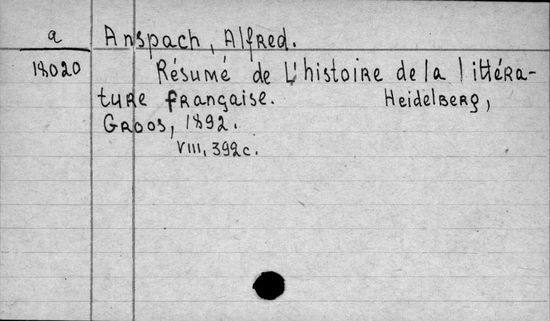 a Anspach, Alfred.
18020 Résumé de L'histoire de la littéra-
ture française. Heidelberg,
Groos, 1892.
VIII, 392c.